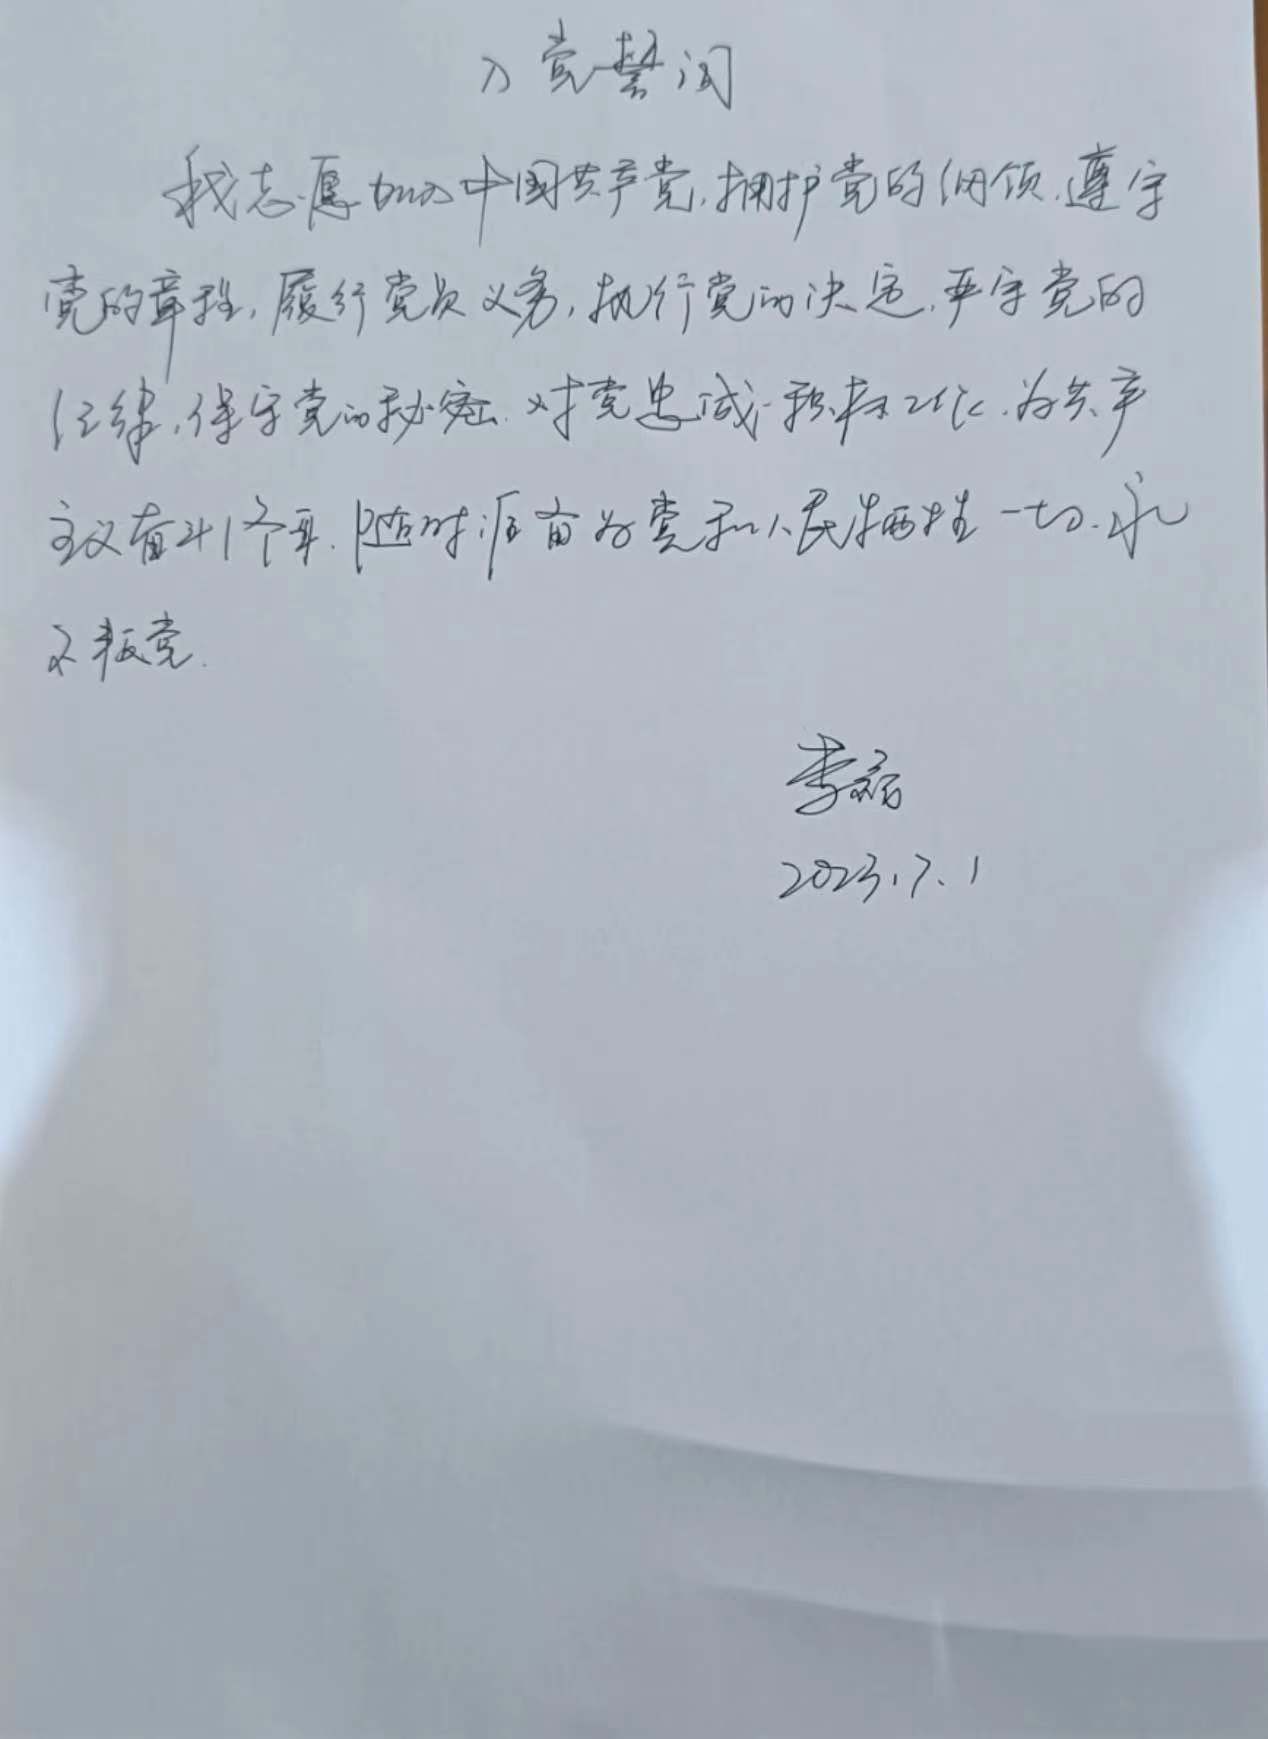 入党誓词
我志愿加入中国共产党,拥护党的纲领.遵守
党的章程,履行党员义务,执行党的决定.严守党的
纪律,保守党的秘密.对党忠诚.积极工作.为共产
主义奋斗终身.随时准备为党和人民牺牲一切.永
不叛党.
李
2023.7.1